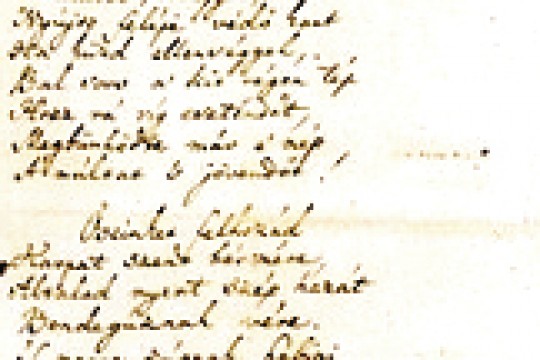 Nyújts feléje védő kart
Ha küzd ellenséggel,
Bal sors a' kit régen tép
Hozz rá víg esztendőt,
Megbünhödte már e' nép
A' múltat 's jövendőt!
Őseinket felhozád
Kárpát szent bérczére,
Általad nyert szép hazát
Bendegúznak vére.
'S merre zúgnak habjai